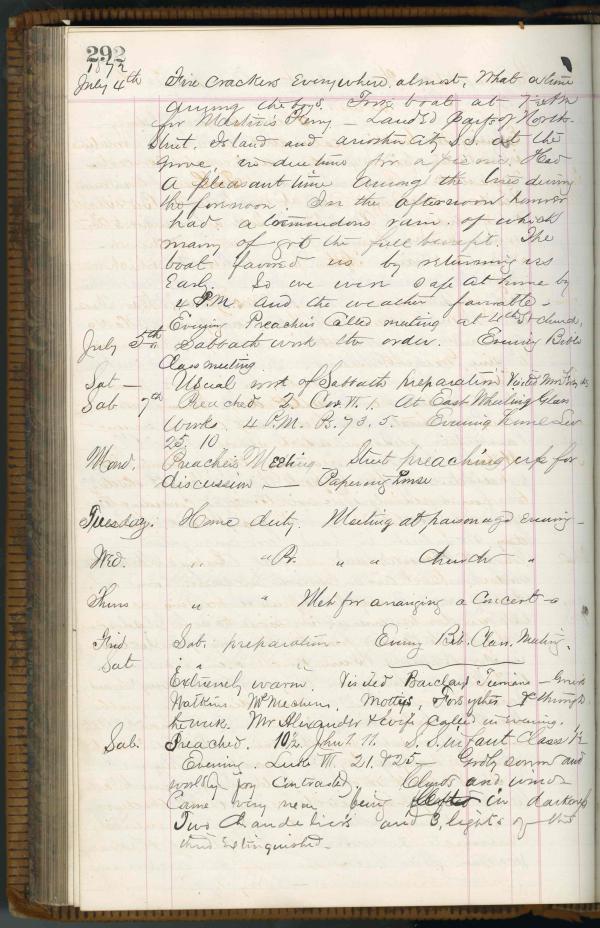 292
1872
July 4th Fire crackers Everywhere, almost, What a time
among the boys. Took boat at 7 1/2 AM
for Martin's Ferry — Landed part of North
Street, Island and S.S. at the
grove, in due time for a picnic. Had
a pleasant time among the trees during
the forenoon. In the afternoon however
had a tremendous rain. of which
many of got the full benefit. The
boat favored us by returning us
Early. So we were safe at home by
4 P.M. and the weather favorable —
Evening Preachers Called meeting at 4th St church,
July 5th Sabbath work the order. Evening Bible
Class meeting.
Sat — Usual work of Sabbath preparation Visited
Sab 7th Preached 2 Cor. VI. 1. At East Wheeling Glass
Works. 4 P.M. Ps. 73. 5. Evening home Lev
25, 10
Mond. Preacher's Meeting — Street preaching up for
discussion — Papering House
Tuesday. Home duty. Meeting at parsonage evening —
Wed. " " Pr. " " Church "
Thurs " " Met for arranging a Concert —
Frid Sab. preparation — Evening Bib. Class. Meeting.
Sat " " "
Extremely warm. Visited Barclay —
Watkins, McMechens, Motteys, Forsythes &
Mr Alexander & wife called in evening.
Sab. Preached. 10 1/2 John 7. 11. S. S. infant Class
Evening. Luke VI. 21. & 25 — Godly sorrow and
worldly joy Contrasted Clouds and wind
Came very near being in darkness
Two Chandeliers and 3, lights of the
third Extinguished —